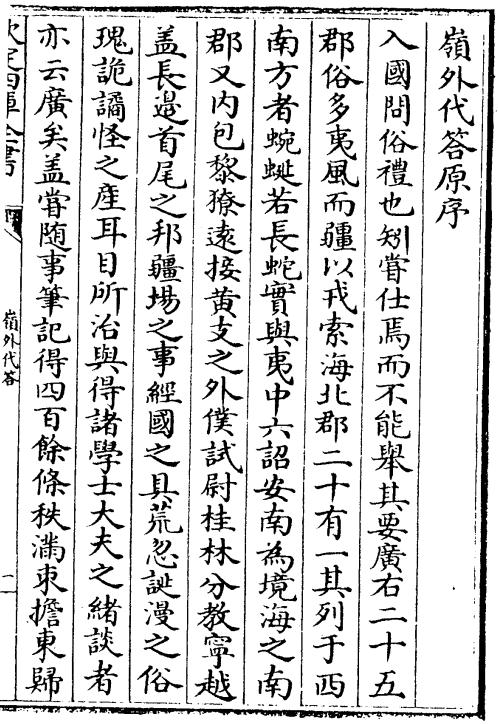 嶺外代答原序
入國問俗禮也矧嘗仕焉而不能舉其要廣右二十五
郡俗多夷風而疆以戎索海北郡二十有一其列于西
南方者蜿蜒若長蛇實與夷中六詔安南為境海之南
郡又内包黎獠遠接黄支之外僕試尉桂林分教寧越
盖長邉首尾之邦疆場之事經國之具荒忽誕漫之俗
瑰詭譎怪之產耳目所治與得諸學士大夫之緒談者
亦云廣矣盖嘗随事筆記得四百餘條秩滿束擔東歸
欽定四庫全書
嶺外代答